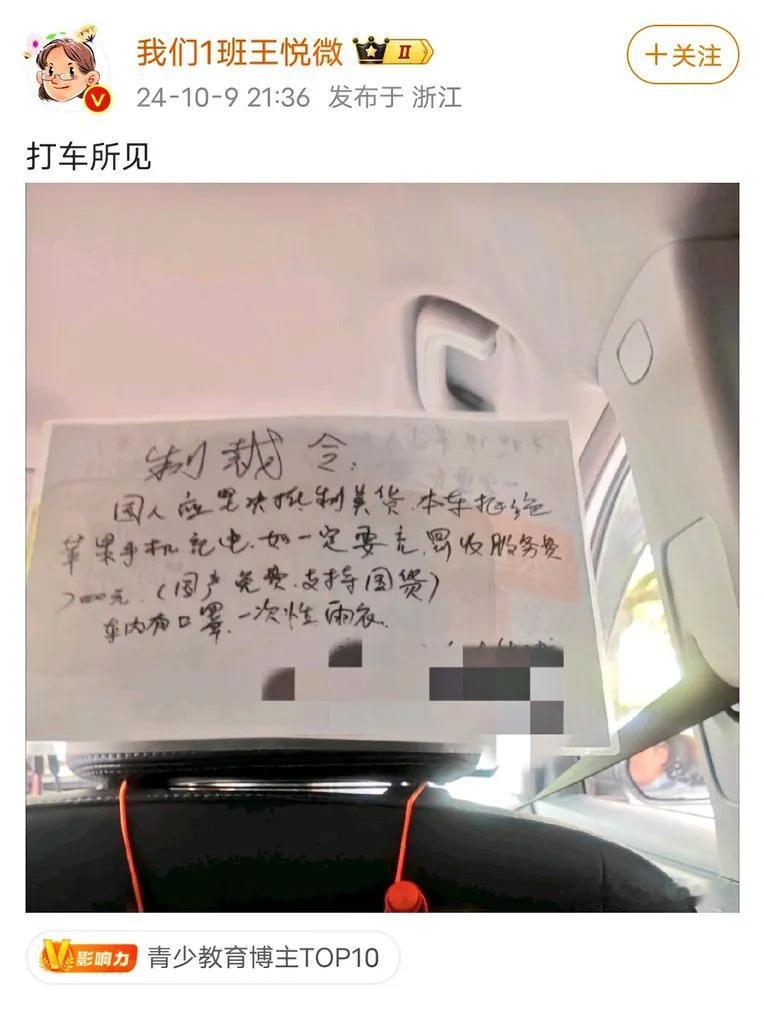 我们1班王悦微
II
+关注
24-10-9 21:36 发布于 浙江
打车所见
制裁令:
国人应坚决抵制美货.本车拒绝
苹果手机充电.如一定要充.需收服务费
元.(国产免费.支持国货)
车内有口罩.一次性雨衣.
V影响力 青少教育博主TOP10